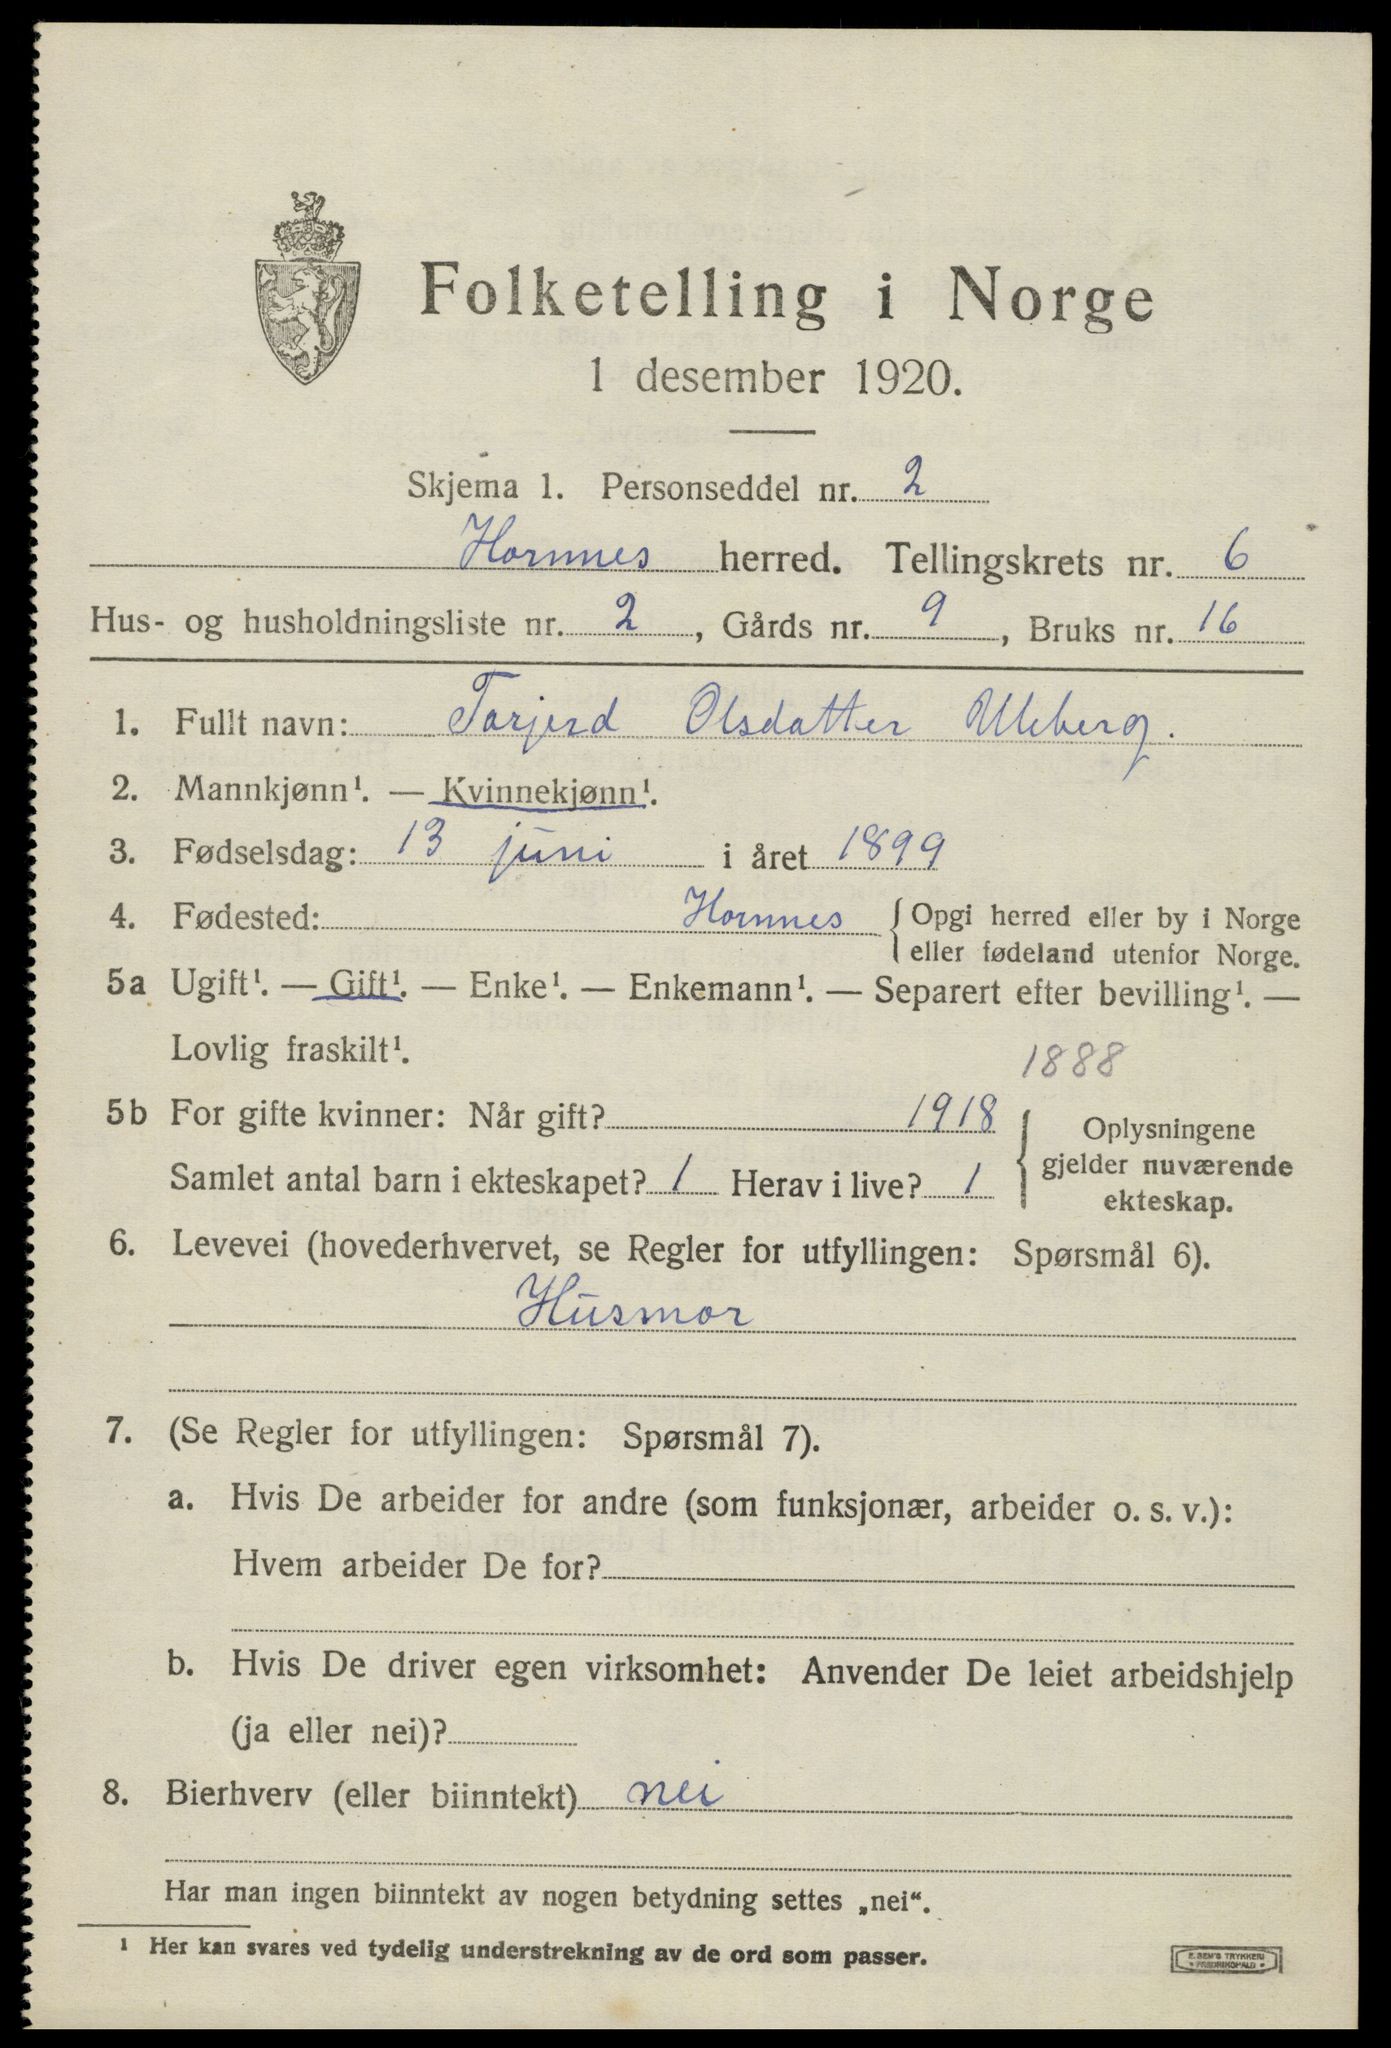 Folketelling i Norge
1 desember 1920.
Skjema 1. Personseddel nr. 2
Hornnes herred. Tellingskrets nr. 6
Hus- og husholdningsliste nr. 2, Gårds nr. 9, Bruks nr. 16
1. Fullt navn: Torjerd Olsdatter Uleberg.
2. Mannkjønn¹. — Kvinnekjønn¹.
3. Fødselsdag: 13 juni i året 1899
4. Fødested: Hornnes { Opgi herred eller by i Norge
eller fødeland utenfor Norge.
5a Ugift¹. — Gift¹. — Enke¹. — Enkemann¹. — Separert efter bevilling¹. —
Lovlig fraskilt¹.
1888
5b For gifte kvinner: Når gift? 1918
Samlet antal barn i ekteskapet? 1 Herav i live? 1
{ Oplysningene
gjelder nuværende
ekteskap.
6. Levevei (hovederhvervet, se Regler for utfyllingen: Spørsmål 6).
Husmor
7. (Se Regler for utfyllingen: Spørsmål 7).
a. Hvis De arbeider for andre (som funksjonær, arbeider o. s. v.):
Hvem arbeider De for?
b. Hvis De driver egen virksomhet: Anvender De leiet arbeidshjelp
(ja eller nei)?
8. Bierhverv (eller biinntekt) nei
Har man ingen biinntekt av nogen betydning settes „nei“.
¹ Her kan svares ved tydelig understrekning av de ord som passer.
E. SEM'S TRYKKERI
• FREDRIKSHALD •